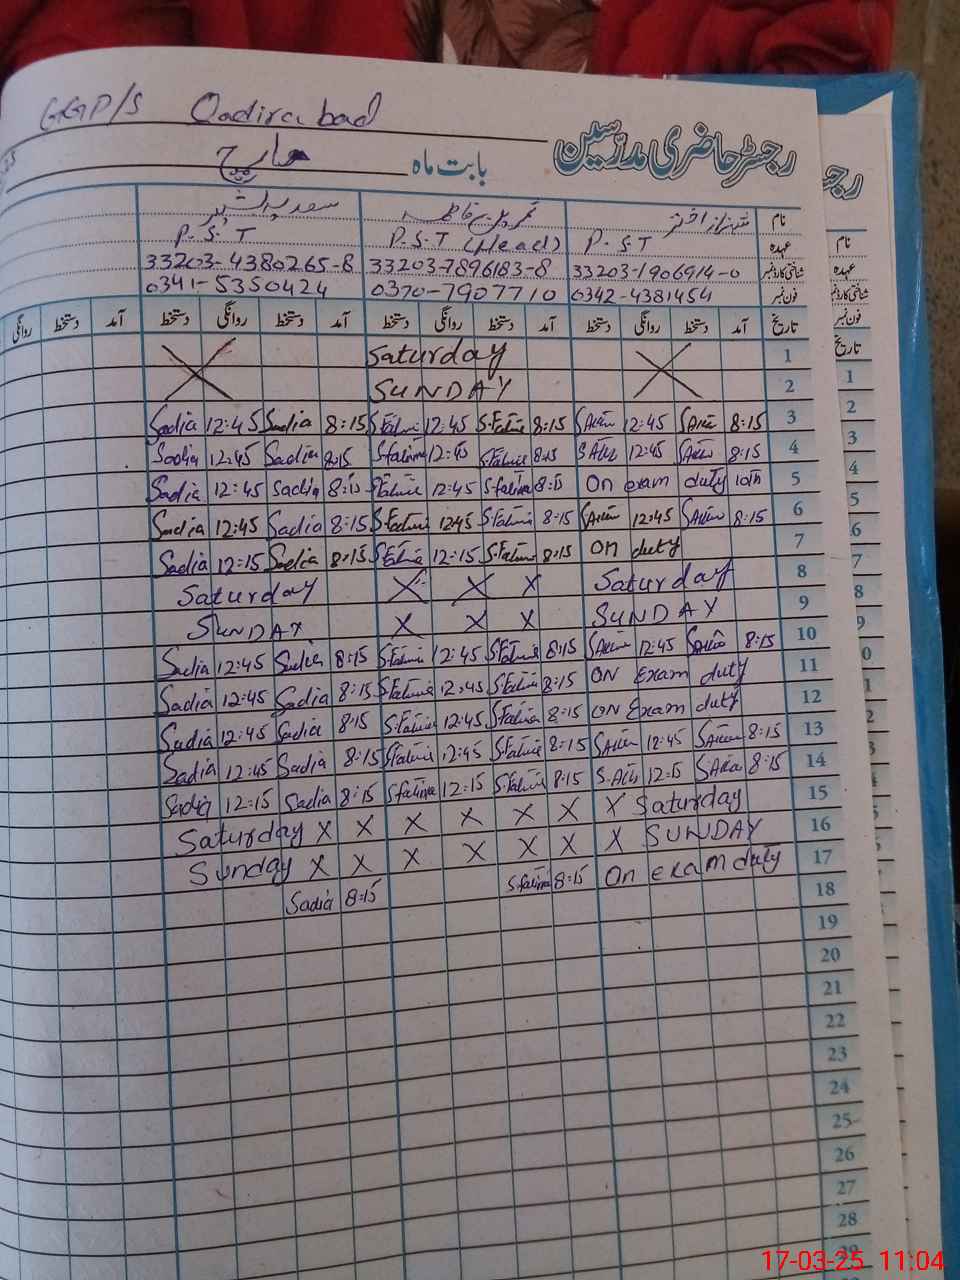 GGP/S Qadirabad
رجسٹر حاضری مدرسین
بابت ماہ مارچ
نام شہناز اختر
عہدہ P.S.T P.S.T (Head) P.S.T
شناختی کارڈ نمبر 33203-1906914-0 33203-7896183-8 33203-4380265-8
فون نمبر 0342-4381454 0370-7907710 0341-5350424
تاریخ آمد دستخط روانگی دستخط آمد دستخط روانگی دستخط آمد دستخط روانگی دستخط آمد دستخط روانگی
Saturday 1
SUNDAY 2
Sadia 12:45 Sadia 8:15 S.Fatima 12:45 S.Fatima 8:15 12:45 8:15 3
Sadia 12:45 Sadia 8:15 S.fatima 12:45 S.Fatima 8:15 12:45 8:15 4
Sadia 12:45 Sadia 8:15 S.Fatima 12:45 S.fatima 8:15 On exam duty 10th 5
Sadia 12:45 Sadia 8:15 S.Fatima 12:45 S.Fatima 8:15 12:45 8:15 6
Sadia 12:15 Sadia 8:15 S.Fatima 12:15 S.Fatima 8:15 On duty 7
Saturday X X X Saturday 8
SUNDAY X X X SUNDAY 9
Sadia 12:45 Sadia 8:15 S.Fatima 12:45 S.Fatima 8:15 12:45 8:15 10
Sadia 12:45 Sadia 8:15 S.Fatima 12:45 S.Fatima 8:15 ON Exam duty 11
Sadia 12:45 Sadia 8:15 S.Fatima 12:45 S.Fatima 8:15 ON Exam duty 12
Sadia 12:45 Sadia 8:15 S.Fatima 12:45 S.Fatima 8:15 12:45 8:15 13
Sadia 12:15 Sadia 8:15 S.fatima 12:15 S.Fatima 8:15 12:15 8:15 14
Saturday X X X X X X X Saturday 15
Sunday X X X X X X X SUNDAY 16
Sadia 8:15 S.fatima 8:15 On exam duty 17
18
19
20
21
22
23
24
25
26
27
28
29
17-03-25 11:04